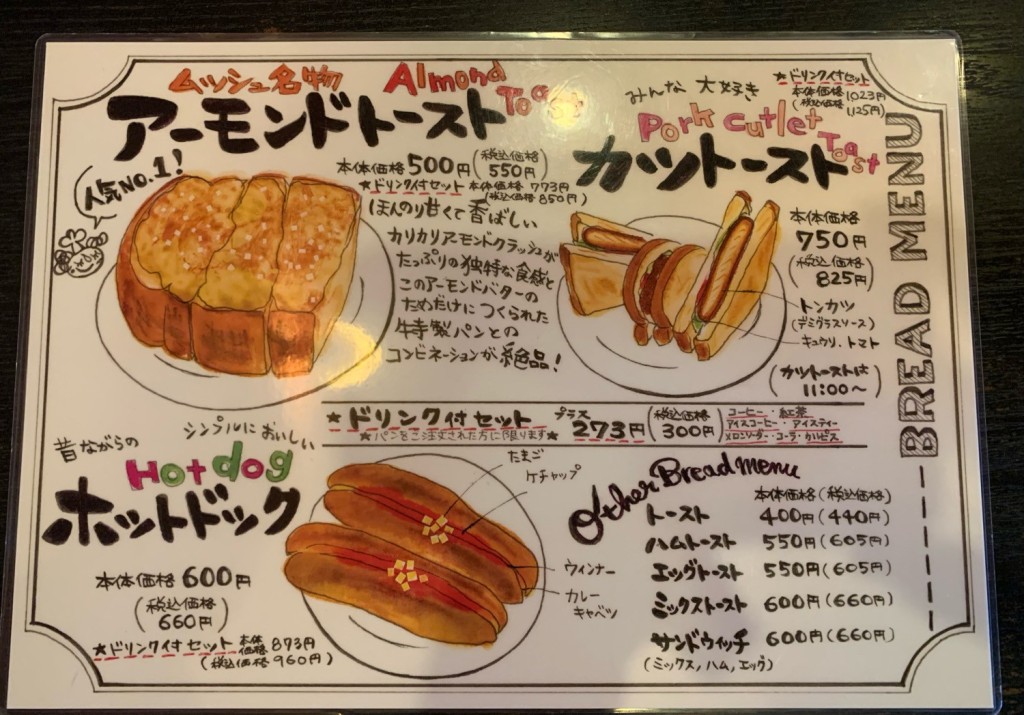 ムッシュ名物
Almond Toast
アーモンドトースト
人気NO.1!
本体価格500円(税込価格550円)
★ドリンク付セット 本体価格 773円
(税込価格850円)
ほんのり甘くて香ばしい
カリカリアーモンドクラッシュが
たっぷりの独特な食感と
このアーモンドバターの
ためだけにつくられた
特製パンとの
コンビネーションが絶品!
みんな 大好き
Pork cutlet Toast
カツトースト
★ドリンク付セット
本体価格1023円
(税込価格1125円)
本体価格
750円
(税込価格
825円)
トンカツ
(デミグラスソース)
キュウリ、トマト
(カツトーストは
11:00〜)
BREAD MENU
★ドリンク付セット プラス 273円(税込価格300円)
★パンをご注文された方に限ります★
コーヒー・紅茶
アイスコーヒー・アイスティー
メロンソーダ・コーラ・カルピス
昔ながらの
シンプルにおいしい
Hotdog
ホットドック
本体価格600円
(税込価格
660円)
★ドリンク付セット 本体価格873円
(税込価格960円)
たまご
ケチャップ
ウィンナー
カレー
キャベツ
Other Bread menu
本体価格(税込価格)
トースト 400円(440円)
ハムトースト 550円(605円)
エッグトースト 550円(605円)
ミックストースト 600円(660円)
サンドウィッチ 600円(660円)
(ミックス,ハム,エッグ)